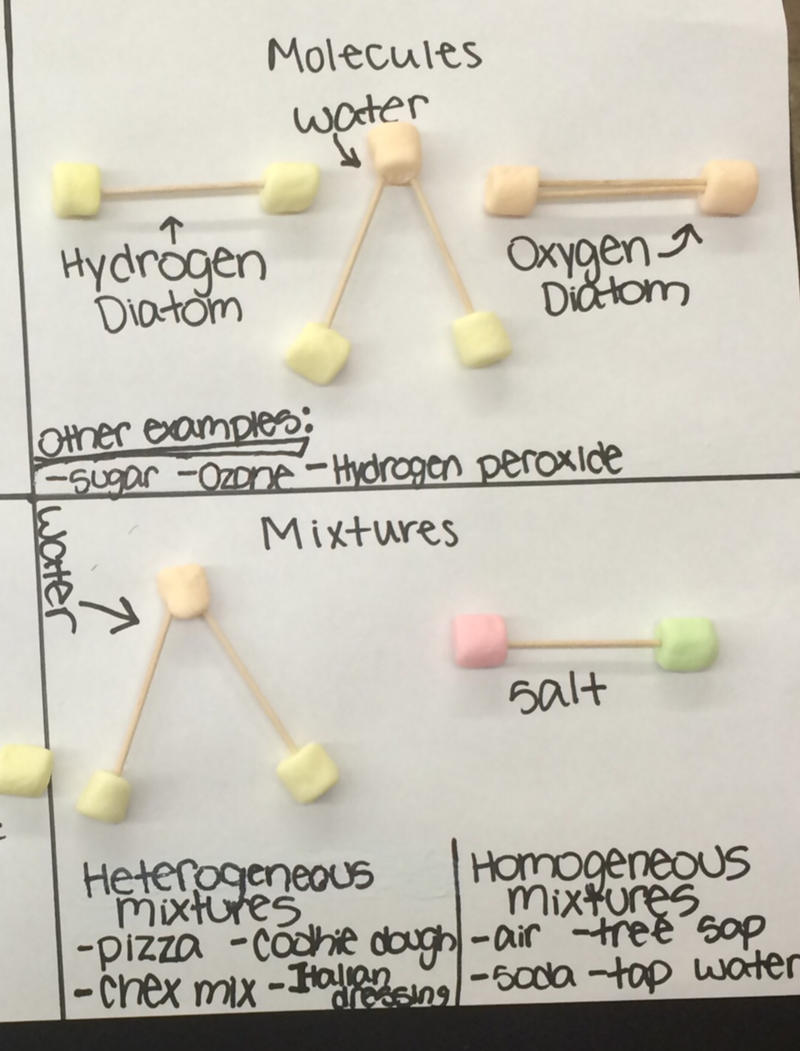 Molecules
water
Hydrogen
Diatom
Oxygen
Diatom
Other examples:
-sugar -Ozone -Hydrogen peroxide
Mixtures
water
salt
Heterogeneous
mixtures
-pizza -cookie dough
-chex mix -Italian
dressing
Homogeneous
mixtures
-air -tree sap
-soda -tap water